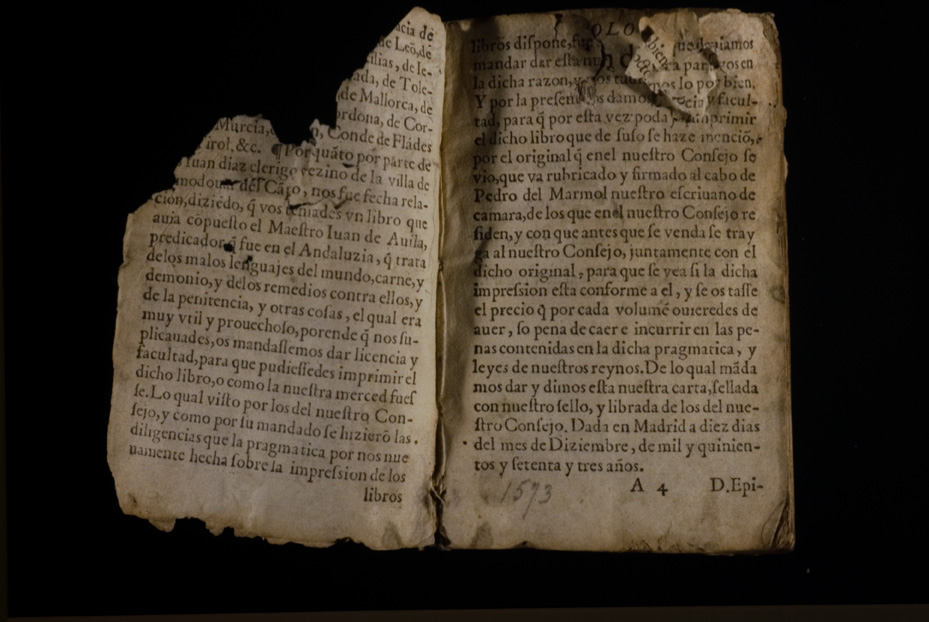 acia de
de Leõ, de
ilias, de Ie-
ada, de Tole-
de Mallorca, de
ordona, de Cor-
Murcia, Conde de Flãdes
irol. &c. ¶ Por quãto por parte de
Iuan diaz clerigo vezino de la villa de
modouar del Cãpo, nos fue fecha rela-
cion, diziẽdo, q̃ vos teniades vn libro que
auia cõpuesto el Maestro Iuan de Auila,
predicador q̃ fue en el Andaluzia, q̃ trata
delos malos lenguajes del mundo, carne, y
demonio, y delos remedios contra ellos, y
de la penitencia, y otras cosas, el qual era
muy vtil y prouechoso, porende q̃ nos su-
plicauades, os mandassemos dar licencia y
facultad, para que pudiessedes imprimir el
dicho libro, o como la nuestra merced fues
se. Lo qual visto por los del nuestro Con-
sejo, y como por su mandado se hizierõ las
diligencias que la pragmatica por nos nue
uamente hecha sobre la impression de los
libros
OLO
libros dispone, fue que deuiamos
mandar dar esta nu a para vos en
la dicha razon, y nos tuuimos lo por bien.
Y por la presente os damos licencia y facul-
tad, para q̃ por esta vez poda imprimir
el dicho libro que de suso se haze menciõ,
por el original q̃ enel nuestro Consejo se
vio, que va rubricado y firmado al cabo de
Pedro del Marmol nuestro escriuano de
camara, de los que enel nuestro Consejo re
siden, y con que antes que se venda se tray
ga al nuestro Consejo, juntamente con el
dicho original, para que se vea si la dicha
impression esta conforme a el, y se os tasse
el precio q̃ por cada volumẽ ouieredes de
auer, so pena de caer e incurrir en las pe-
nas contenidas en la dicha pragmatica, y
leyes de nuestros reynos. De lo qual mãda
mos dar y dimos esta nuestra carta, sellada
con nuestro sello, y librada de los del nue-
stro Consejo. Dada en Madrid a diez dias
del mes de Diziembre, de mil y quinien-
tos y setenta y tres años.
1573
A 4 D. Epi-